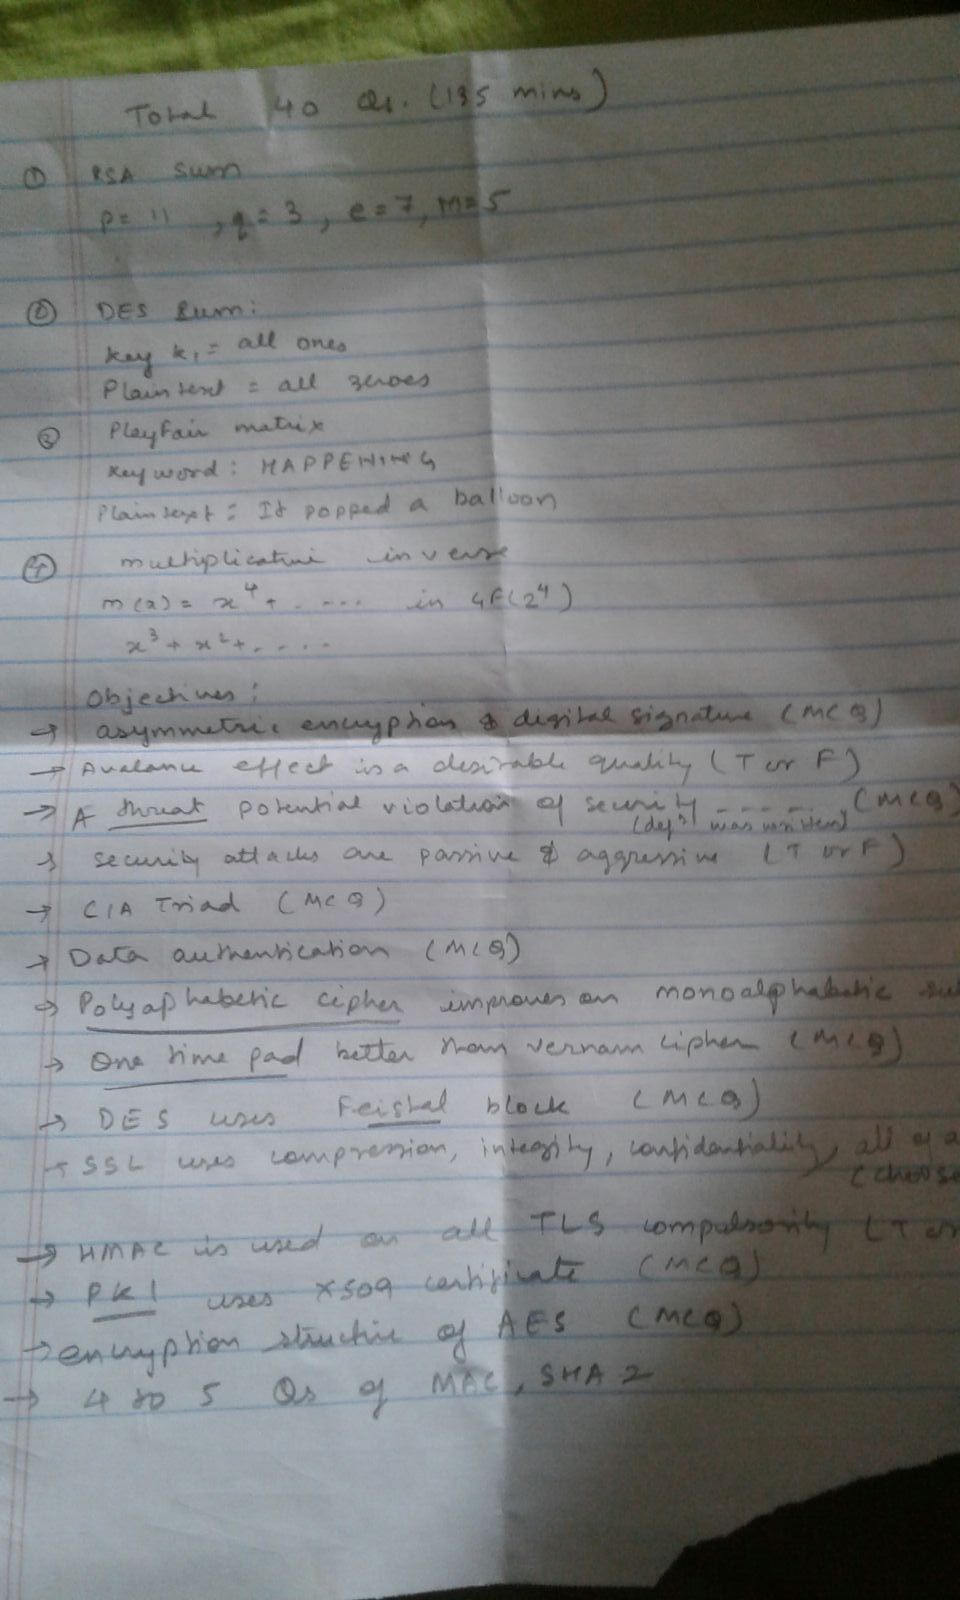 Total 40 Qs. (135 mins)
① RSA sum
p= 11 , q = 3 , e = 7, M=5
② DES sum:
key k1 = all ones
Plaintext = all zeroes
③ Playfair matrix
keyword: HAPPENING
Plaintext: It popped a balloon
④ multiplicative inverse
m(x) = x⁴ + . . . . . in GF(2⁴)
x³ + x² + . . . .
Objectives:
→ asymmetric encryption & digital signature (MCQ)
→ Avalance effect is a desirable quality (T or F)
→ A threat potential violation of security - - - - - (MCQ)
(defⁿ was written)
→ security attacks are passive & aggressive (T or F)
→ CIA Triad (MCQ)
→ Data authentication (MCQ)
→ Polyaphabetic cipher improves on monoalphabetic
→ One time pad better than vernam cipher (MCQ)
→ DES uses Feistal block (MCQ)
→ SSL uses compression, integrity, confidentiality, all of a
(choose
→ HMAC is used on all TLS compulsorily (T or
→ PKI uses X509 certificate (MCQ)
→ encryption structure of AES (MCQ)
→ 4 to 5 Qs of MAC, SHA 2